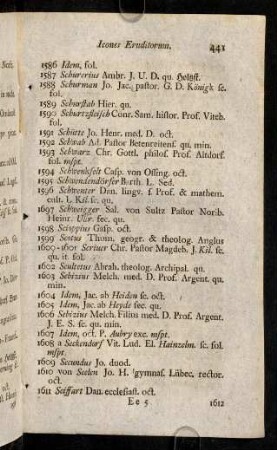 Icones Eruditorum. 441
1586 Idem, fol.
1587 Schurerius Ambr. J. U. D. qu.
1588 Schurman Jo. Jac. pastor. G. D. König sc.
fol.
1589 Schurstab Hier. qu.
1590 Schurtzfleisch Conr. Sam. histor. Prof. Viteb.
fol.
1591 Schütte Jo. Henr. med. D. oct.
1592 Schwab Ad. Pastor Betenreitens. qu. min.
1593 Schwarz Chr. Gottl. philos. Prof. Altdorf.
fol. mspt.
1594 Schwenkfelt Casp. von Ossing. oct.
1595 Schwendendörfer Barth. L. Sed.
1596 Schwenter Dan. lingv. s. Prof. & mathem.
1597 Schweigger Sal. von Sultz Pastor Norib.
Heinr. Ullr. fec. qu.
1598 Scioppius Gasp. oct.
1599 Scotus Thom. geogr. & theolog. Anglus
1600-1601 Scriver Chr. Pastor Magdeb. J. Kil. sc.
qu. it. fol.
1602 Scultetus Abrah. theolog. Archipal. qu.
1603 Sebizius Melch. med. D. Prof. Argent. qu.
min.
1604 Idem, Jac. ab Heiden sc. oct.
1605 Idem, Jac. ab Heyde fec. qu.
1606 Sebizius Melch. Filius med. D. Prof. Argent.
J. E. S. sc. qu. min.
1607 Idem, oct. P. Aubry exc. mspt.
1608 a Seckendorf Vit. Lud. El. Hainzelm. sc. fol.
mspt.
1609 Secundus Jo. duod.
1610 von Seelen Jo. H. gymnas. Lübec. rector.
oct.
1611 Seiffart Dan. ecclesiast. oct.
Ee 5 1612